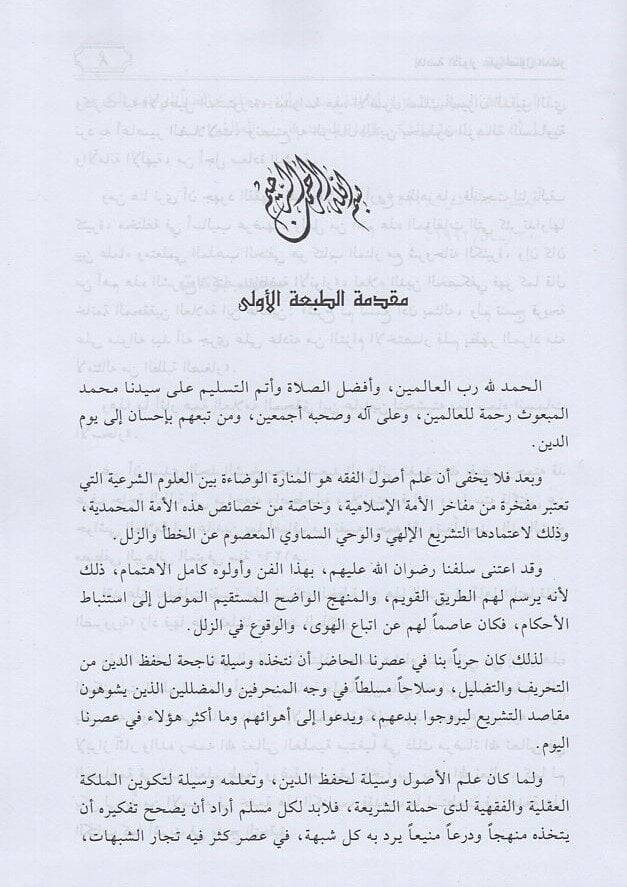 بسم الله الرحمن الرحيم
مقدمة الطبعة الأولى
الحمد لله رب العالمين، وأفضل الصلاة وأتم التسليم على سيدنا محمد
المبعوث رحمة للعالمين، وعلى آله وصحبه أجمعين، ومن تبعهم بإحسان إلى يوم
الدين.
وبعد فلا يخفى أن علم أصول الفقه هو المنارة الوضاءة بين العلوم الشرعية التي
تعتبر مفخرة من مفاخر الأمة الإسلامية، وخاصة من خصائص هذه الأمة المحمدية،
وذلك لاعتمادها التشريع الإلهي والوحي السماوي المعصوم عن الخطأ والزلل.
وقد اعتنى سلفنا رضوان الله عليهم، بهذا الفن وأولوه كامل الاهتمام، ذلك
لأنه يرسم لهم الطريق القويم، والمنهج الواضح المستقيم الموصل إلى استنباط
الأحكام، فكان عاصماً لهم عن اتباع الهوى، والوقوع في الزلل.
لذلك كان حرياً بنا في عصرنا الحاضر أن نتخذه وسيلة ناجحة لحفظ الدين من
التحريف والتضليل، وسلاحاً مسلطاً في وجه المنحرفين والمضللين الذين يشوهون
مقاصد التشريع ليروجوا بدعهم، ويدعوا إلى أهوائهم وما أكثر هؤلاء في عصرنا
اليوم.
ولما كان علم الأصول وسيلة لحفظ الدين، وتعلمه وسيلة لتكوين الملكة
العقلية والفقهية لدى حملة الشريعة، فلابد لكل مسلم أراد أن يصحح تفكيره أن
يتخذه منهجاً ودرعاً منيعاً يرد به كل شبهة، في عصر كثر فيه تجار الشبهات،